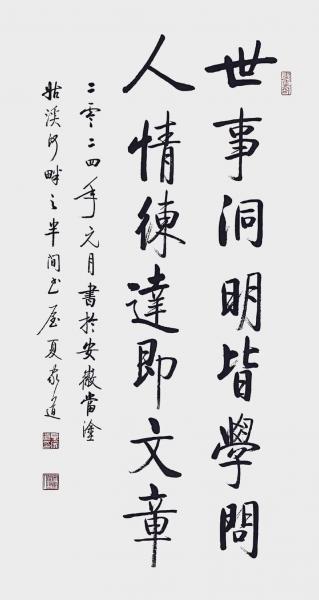 世事洞明皆學問
人情練達即文章
二零二四年元月書於安徽當塗
姑溪河畔之半間書屋夏家道